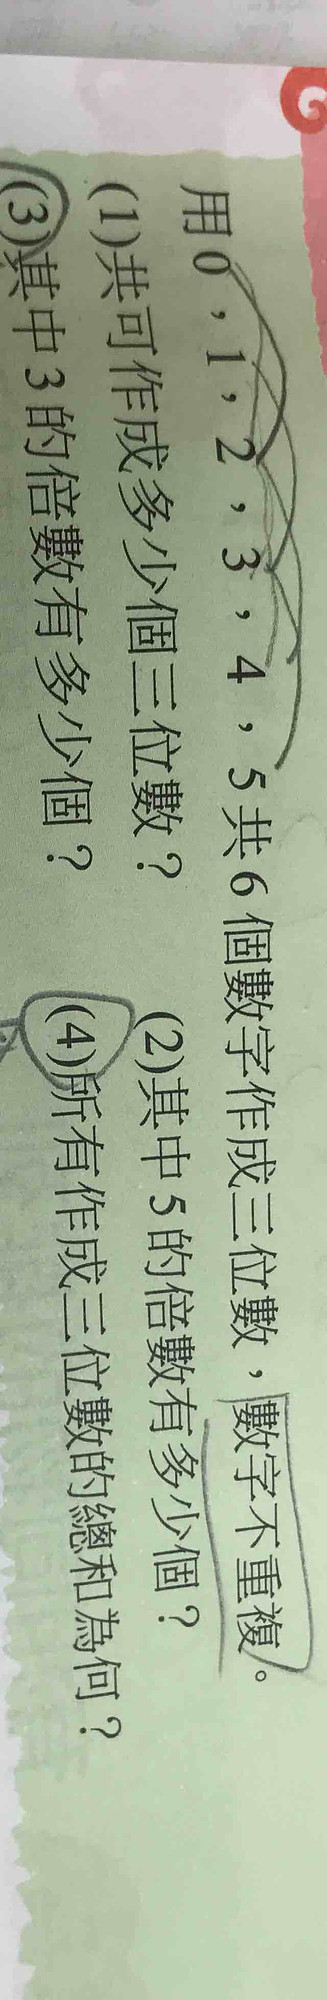 用0，1，2，3，4，5共6個數字作成三位數，數字不重複。
(1)共可作成多少個三位數？ (2)其中5的倍數有多少個？
(3)其中3的倍數有多少個？ (4)所有作成三位數的總和為何？